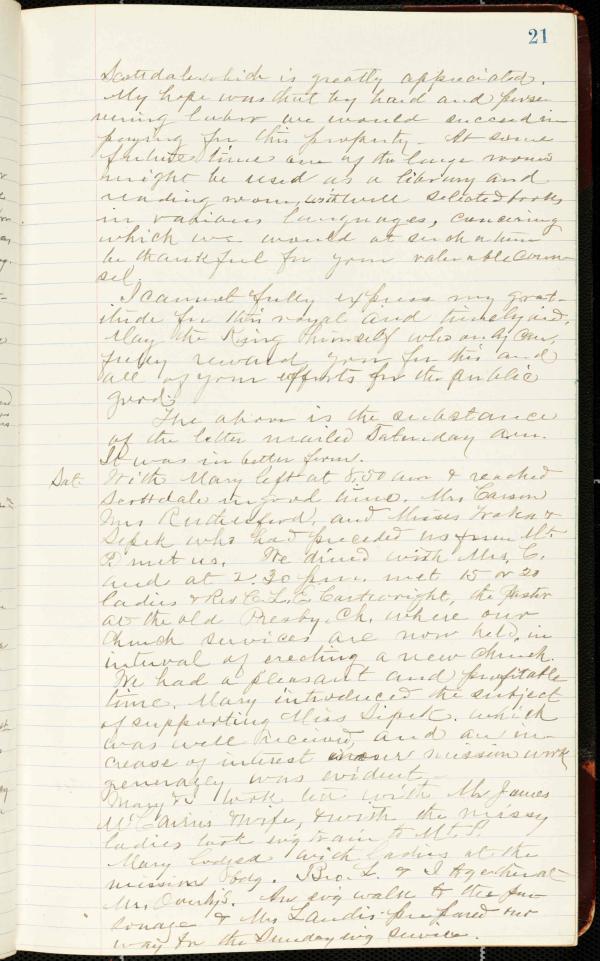 21
Scottdale which is greatly appreciated.
My hope was that by hard and perse-
vering labor we would succeed in
paying for this property. At some
future time one of the large rooms
might be used as a library and
reading room, with well selected books
in various languages, concerning
which we would at such a time
be thankful for your valuable coun-
sel.
I cannot fully express my grat-
itude for this royal and timely aid.
May the King himself who only can,
fully reward you for this and
all of your efforts for the public
good.
The above is the substance
of the letter mailed Saturday a.m.
It was in better form.
Sat. With Mary left at 8,50 a.m. & reached
Scottdale in good time. Mrs Carson
Mrs Rutherford, and Misses &
Sipek who had preceded us from Mt.
P. met us. We dined with Mrs. C.
and at 2,30 p.m. met 15 or 20
ladies & Rev C. L. E. Cartwright, the Pastor
at the old Presby. Ch. where our
Church services are now held, in
interval of erecting a new Church.
We had a pleasant and profitable
time. Mary introduced the subject
of supporting Miss Sipek, which
was well received, and an in-
crease of interest in our mission work
generally was evident.
Mary & I took tea with Mr James
& wife, & with the missy
ladies took evg train to Mt. P.
Mary lodged with ladies at the
mission bdg. Bro. L. & I together at
Mr. An evg walk to the par-
sonage & Mrs Landis prepared our
way for the Sunday evg service.